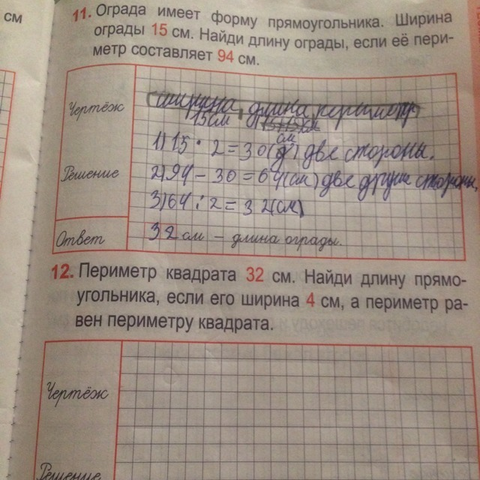 см
11. Ограда имеет форму прямоугольника. Ширина
ограды 15 см. Найди длину ограды, если её пери-
метр составляет 94 см.
Чертёж
ширина, длина, периметр
15см
1) 15 · 2 = 30 (см) две стороны.
Решение
2) 94 – 30 = 64 (см) две другие стороны,
3) 64 : 2 = 32 (см)
Ответ
32 см – длина ограды.
12. Периметр квадрата 32 см. Найди длину прямо-
угольника, если его ширина 4 см, а периметр ра-
вен периметру квадрата.
Чертёж
Решение